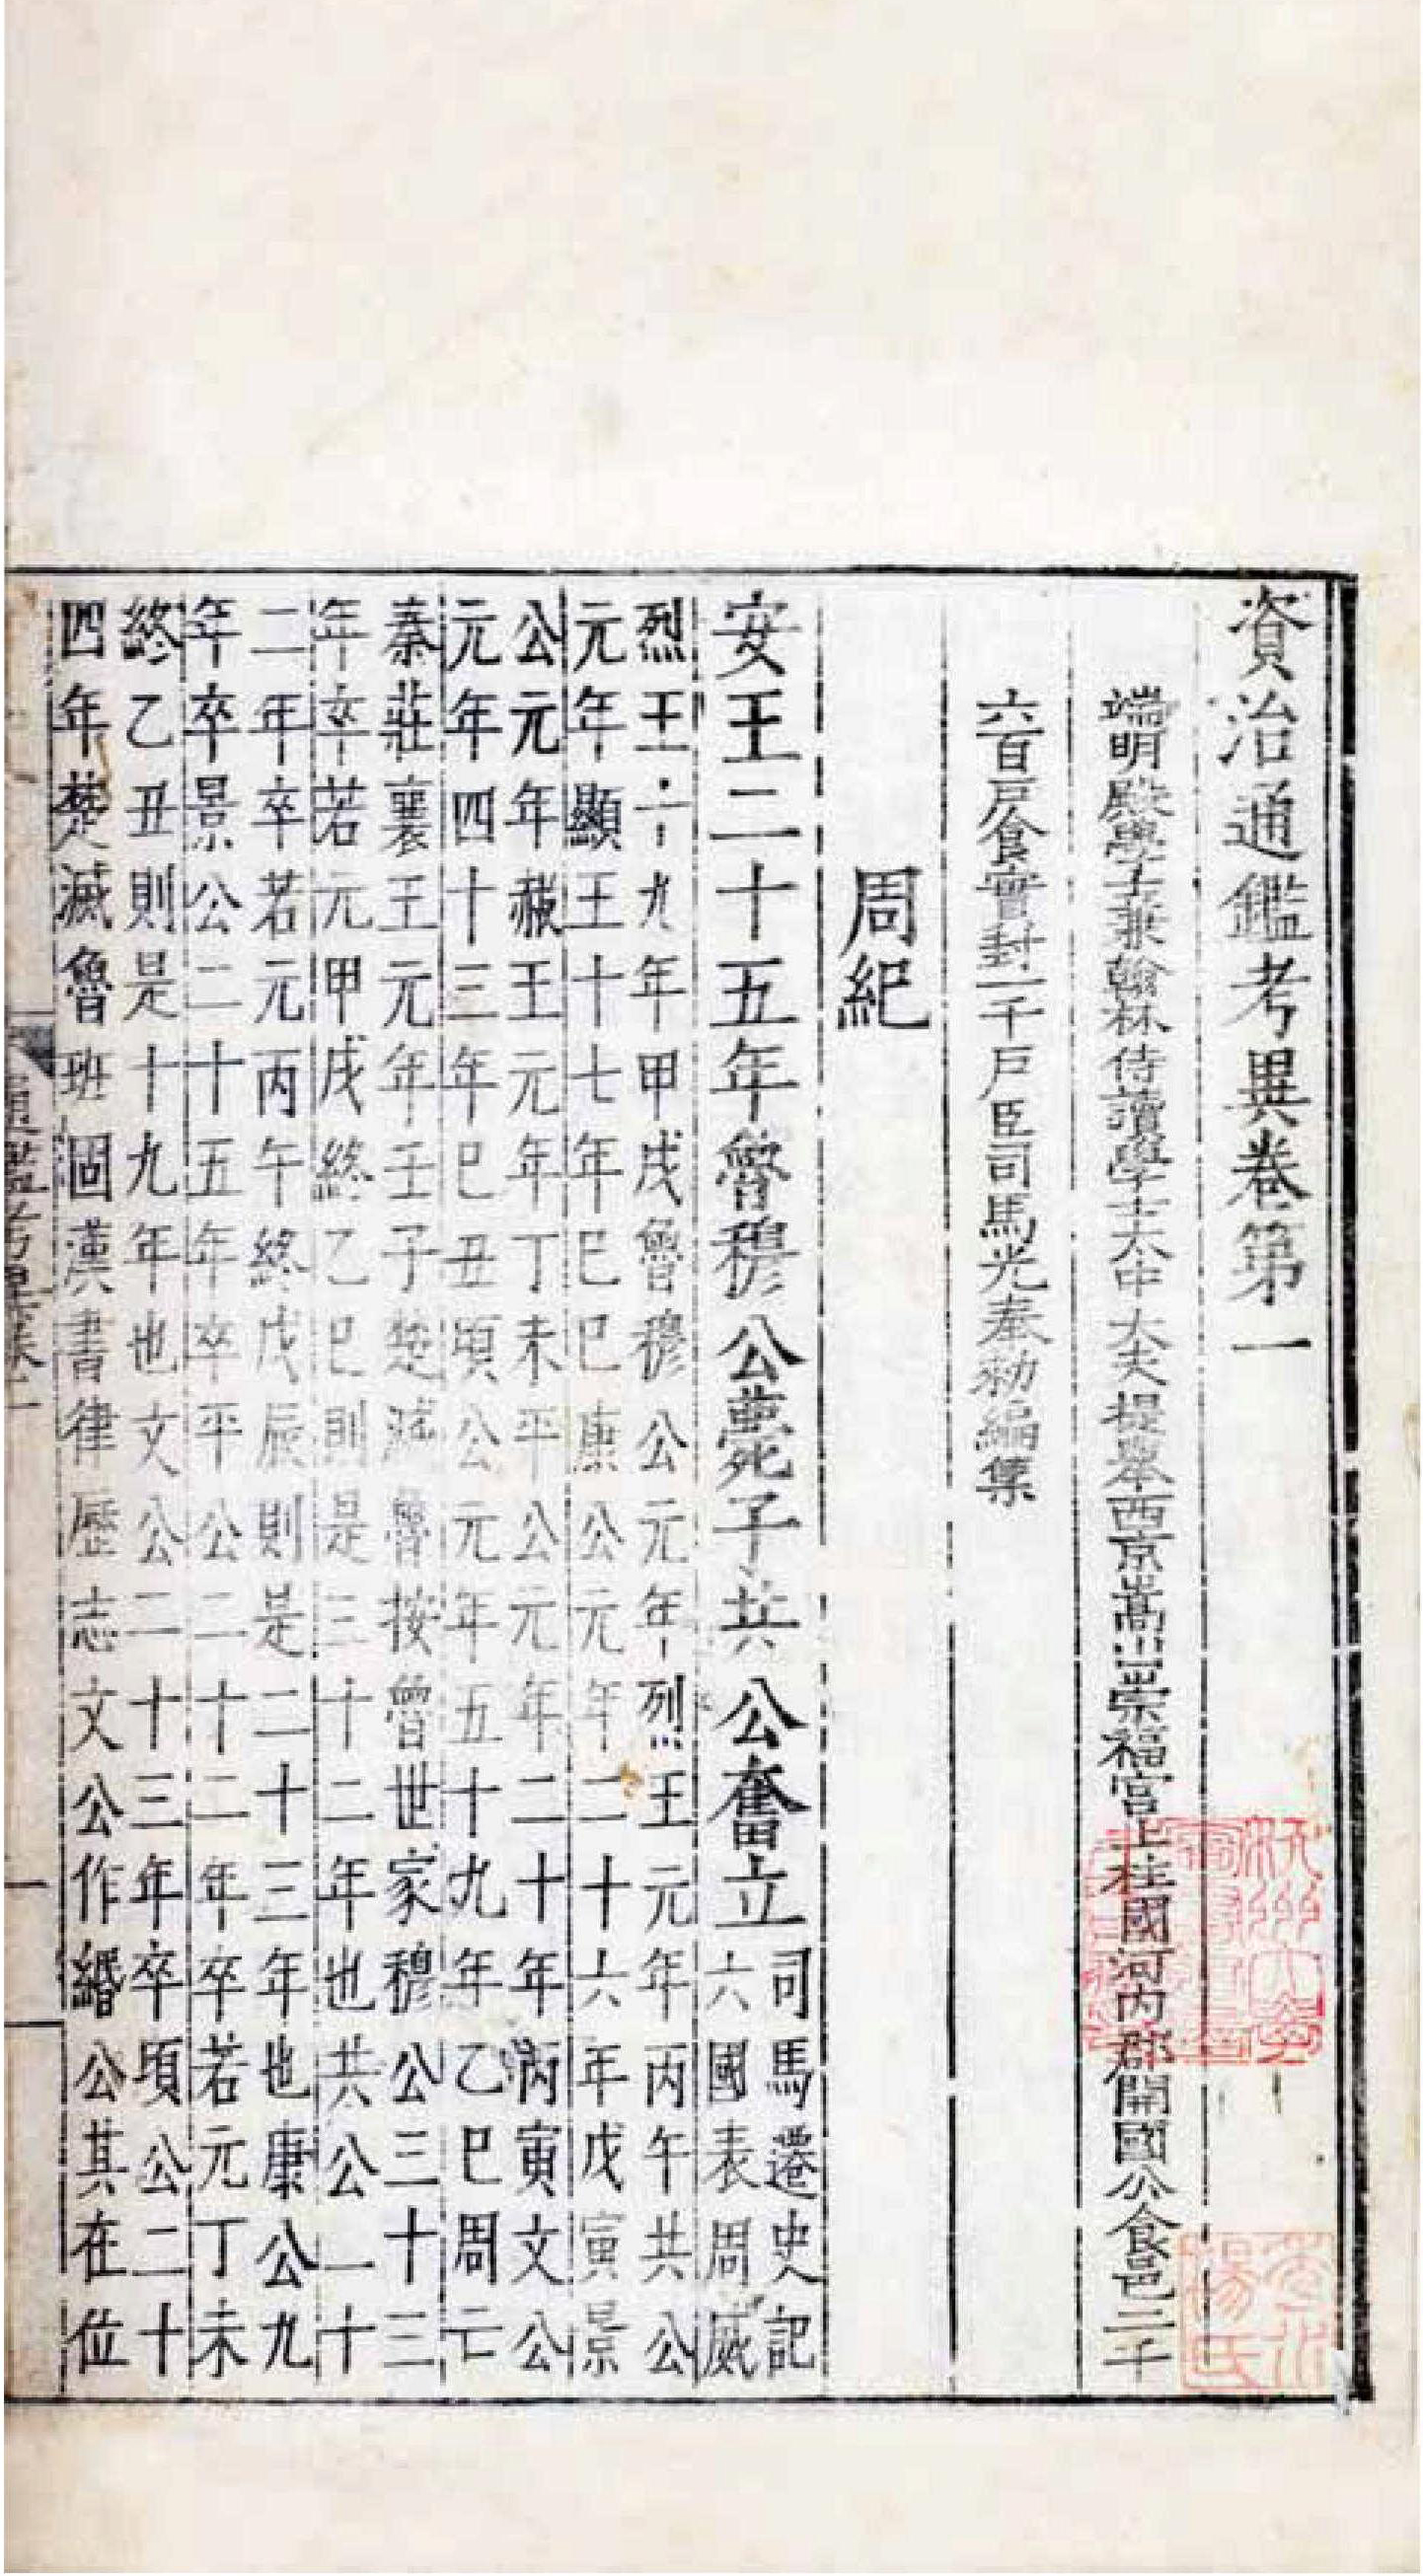 資治通鑑考異卷第一
端明殿學士兼翰林侍讀學士太中大夫提舉西京嵩山崇福宮上柱國河內郡開國公食邑二千
六百戶食實封一千戶臣司馬光奉勑編集
周紀
安王二十五年魯穆公薨子共公奮立
司馬遷史記
六國表周威
烈王十九年甲戌魯穆公元年烈王元年丙午共公
元年顯王十七年己巳康公元年二十六年戊寅景
公元年赧王元年丁未平公元年二十年丙寅文公
元年四十三年己丑頃公元年五十九年乙巳周亡
秦莊襄王元年壬子楚滅魯按魯世家穆公三十三
年卒若元甲戌終乙巳則是三十二年也共公二十
二年卒若元丙午終戊辰則是二十三年也康公九
年卒景公二十五年卒平公二十二年卒若元丁未
終乙丑則是十九年也文公二十三年卒頃公二十
四年楚滅魯班固漢書律歷志文公作緡公其在位
通鑑考異第一
一